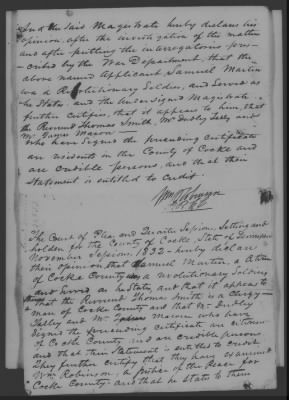 And the said Magistrate hereby declares his
opinion after the investigation of the matter
and after putting the interrogatories pres-
cribed by the War Department, that the
above named Applicant Samuel Martin
was a Revolutionary Soldier, and Served as
he States and the undersigned Magistrate
further certifies, that it appears to him, that
the Reverend Thomas Smith, Mr Dudley Tally and
Mr Mason
who have signed the preceding certificate
are residents in the County of Cocke and
are credible persons, and that their
Statement is entitled to credit
Wm Robinson
The Court of Pleas and Quarter Sessions, Setting and
holden for the County of Cocke, State of Tennessee
November Sessions 1832 - hereby declare
their opinion that Samuel Martin, a Citizen
of Cocke County was a revolutionary Soldier
and Served as he States, and that it appears to
the Reverend Thomas Smith is a Clergy-
man of Cocke County and that Mr Dudley
Tally and Mr Mason who have
signed the preceding certificate are citizens
of Cocke County, and are credible persons
and that their Statement is entitled to credit
They further certify that they have examined
Wm Robinson, Justice of the Peace for
Cocke County, and that he States to them